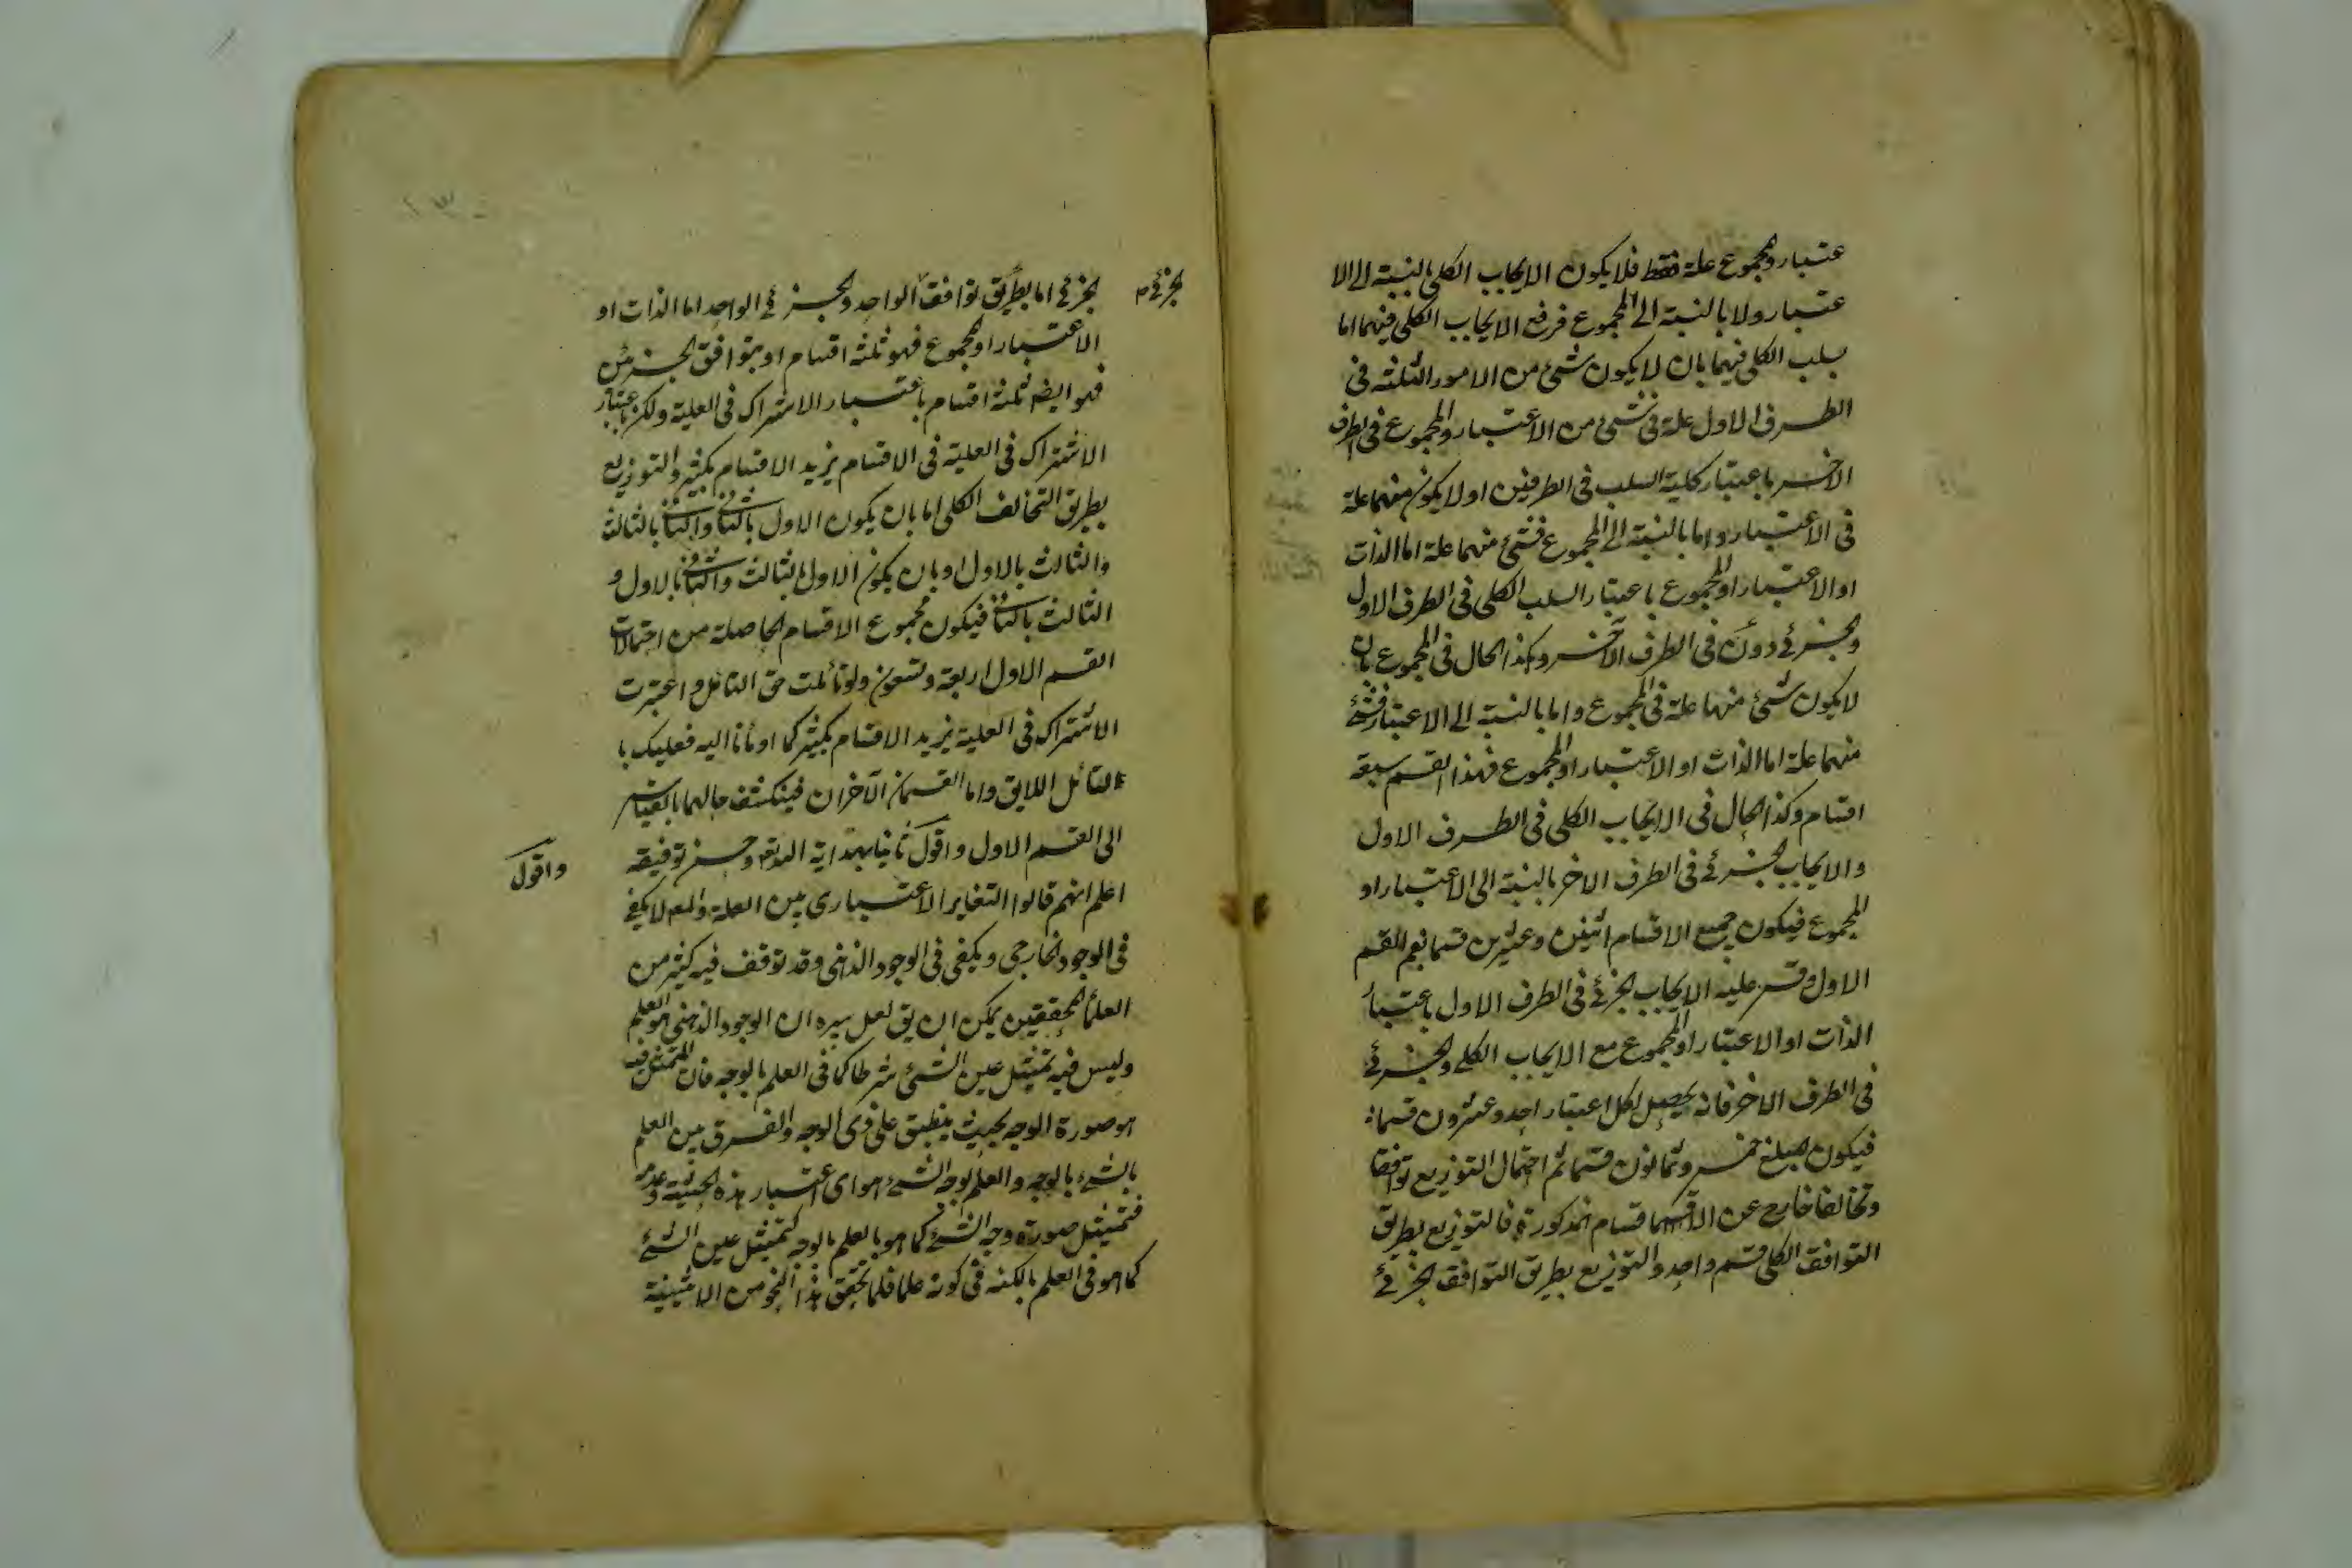 عتبار والمجموع علة فقط فلا يكون الايجاب الكلى بالنسبة الى الا
عتبار ولا بالنسبة الى المجموع فرفع الايجاب الكلى فيهما اما
بسلب الكلى فيهما بان لا يكون شئ من الامور الثلثة فى
الطرف الاول علة فى شئ من الاعتبار والمجموع فى الطرف
الاخر باعتبار كلية السلب فى الطرفين او لا يكون منهما علة
فى الاعتبار واما بالنسبة الى المجموع فشئ منهما علة اما الذات
او الاعتبار او المجموع باعتبار السلب الكلى فى الطرف الاول
والجزئى دون فى الطرف الآخر وكذا الحال فى المجموع بان
لا يكون شئ منها علة فى المجموع واما بالنسبة الى الاعتبار فشئ
منهما علة اما الذات او الاعتبار او المجموع فهذا القسم سبعة
اقسام وكذا الحال فى الايجاب الكلى فى الطرف الاول
والايجاب الجزئى فى الطرف الاخر بالنسبة الى الاعتبار او
المجموع فيكون جميع الاقسام اثنين وعشرين قسما نعم القسم
الاول وقس عليه الايجاب الجزئى فى الطرف الاول باعتبار
الذات او الاعتبار او المجموع مع الايجاب الكلى والجزئى
فى الطرف الاخر فانه يحصل لكل اعتبار احد وعشرون قسما
فيكون مبلغ خمس وثمانون قسما ثم احتمال التوزيع توافقا
وتخالفا خارج عن الاقسام المذكورة فالتوزيع بطريق
التوافق الكلى قسم واحد والتوزيع بطريق التوافق الجزئى
الجزئى م
الجزئى اما بطريق توافق الواحد والجزئى الواحد اما الذات او
الاعتبار او المجموع فهو ثلثة اقسام او بتوافق الجزئين
فهو ايضا ثلثة اقسام باعتبار الاشتراك فى العلية ولكن باعتبار
الاشتراك فى العلية فى الاقسام يزيد الاقسام بكثير والتوزيع
بطريق التخالف الكلى اما بان يكون الاول بالثانى والثانى بالثالث
والثالث بالاول او بان يكون الاول بالثالث والثانى بالاول و
الثالث بالثانى فيكون مجموع الاقسام الحاصلة من احتمالات
القسم الاول اربعة وتسعون ولو تأملت حق التأمل واعتبرت
الاشتراك فى العلية يزيد الاقسام بكثير كما اومأنا اليه فعليك با
لتأمل اللايق واما القسمان الآخران فينكشف حالهما بالقياس
الى القسم الاول واقول ثانيا بهداية الله تعم وحسن توفيقه
واقول
اعلم انهم قالوا التغاير الاعتبارى بين العلة والمع لا يكفى
فى الوجود الخارجى ويكفى فى الوجود الذهنى وقد توقف فيه كثير من
العلماء المحققين يمكن ان يق لعل سره ان الوجود الذهنى هو العلم
وليس فيه تمثيل عين الشئ شرطا كما فى العلم بالوجه فان المتمثل فيه
هو صورة الوجه بحيث ينطبق على ذى الوجه والفرق بين العلم
بالشئ بالوجه والعلم بوجه الشئ هو اى اعتبار هذه الحيثية وعدمه
فتمثيل صورة وجه الشئ كما هو بالعلم بالوجه كتمثيل عين الشئ
كما هو فى العلم بالكنه فى كونه علما فلما تحقق هذا النحو من الاثنينية